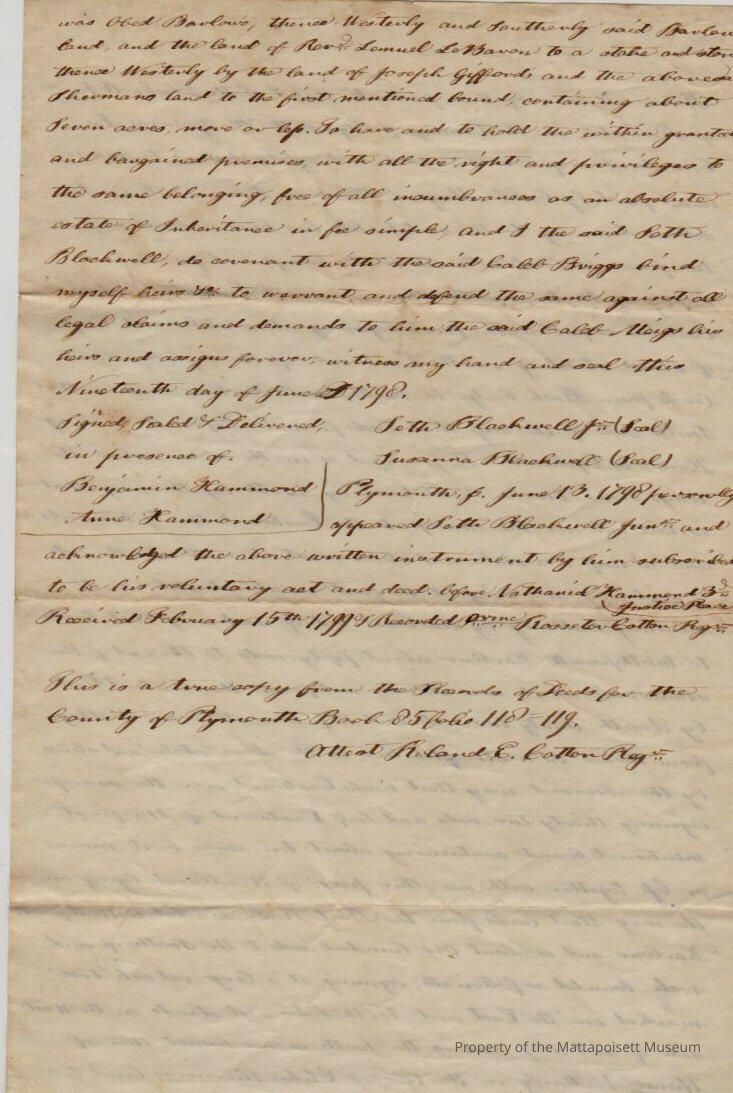 was Obed Barlows, thence Westerly and Southerly said Barlow
land, and the land of Revd. Lemuel LeBaron to a stake and ston
thence Westerly by the land of Joseph Giffords and the abovesa
Shermans land to the first mentioned bound, containing about
Seven acres, more or less. To have and to hold the within granted
and bargained premises, with all the right and privileges to
the same belonging, free of all incumbrances as an absolute
estate of Inheritance in fee simple, and I the said Seth
Blackwell, do covenant with the said Caleb Briggs bind
myself heirs &c. to warrant and defend the same against all
legal claims and demands to him the said Caleb Meigs his
heirs and assigns forever, witness my hand and seal this
Nineteenth day of June AD 1798.
Signed, Sealed & Delivered,
in presence of.
Benjamin Hammond
Anne Hammond
Seth Blackwell Jr. (Seal)
Susanna Blackwell (Seal)
Plymouth, ss. June 13. 1798 personally
appeared Seth Blackwell Junr. and
acknowledged the above written instrument by him subscribed
to be his voluntary act and deed. before Nathaniel Hammond 3d
Justice Peace
Received February 15th 1799 & Recorded Rosseter Cotton Regr.
This is a true copy from the Records of Deeds for the
County of Plymouth Book 85 folio 118-119.
Attest Roland E. Cotton Regr.
Property of the Mattapoisett Museum